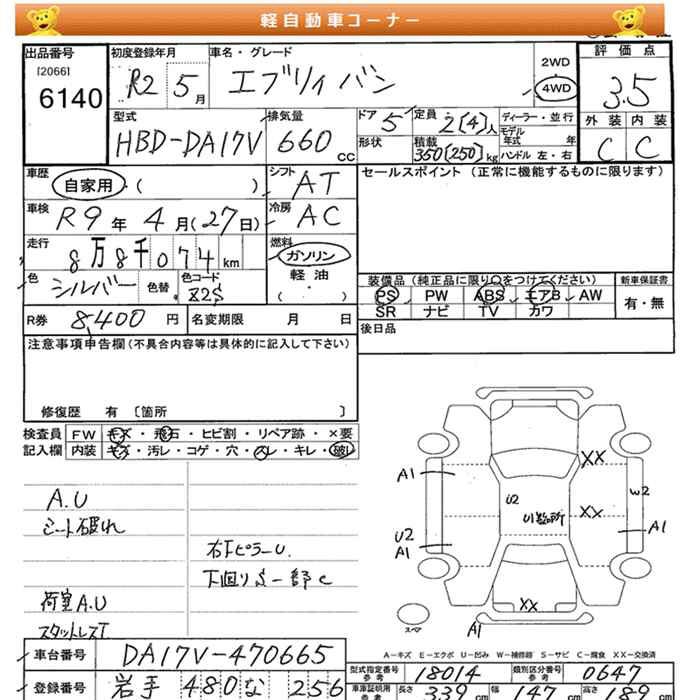 軽自動車コーナー
出品番号
[2066]
6140
初度登録年月
R2 5月
車名・グレード
エブリイバン
2WD
4WD
評価点
3.5
外装 内装
C C
型式
HBD-DA17V
排気量
660 CC
ドア 5
形状
定員 2[4]人
積載 350[250]kg
ディーラー・並行
モデル年式 年
ハンドル 左・右
車歴
自家用 ( )
シフト AT
車検
R9年4月(27日)
冷房 AC
走行
8万8千074km
燃料
ガソリン
軽油
( ・ )
色
シルバー
色替
色コード
R券 8,400円
名変期限 月 日
セールスポイント(正常に機能するものに限ります)
装備品(純正品に限り○をつけてください)
新車保証書
PS PW ABS エアB AW
SR ナビ TV カワ
有・無
後日品
注意事項申告欄(不具合内容等は具体的に記入して下さい)
修復歴 有 〔箇所 〕
検査員記入欄
FW キズ・飛石・ヒビ割・リペア跡・×要
内装 キズ・汚レ・コゲ・穴・スレ・キレ・破レ
A.U
シート破れ
右FピラーU.
下回りS一部C
荷室A.U
スタットレスT
XX
A1
W2
U2
XX
A1
U2
A1
XX
スペア
A1
A-キズ E-エクボ U-凹み W-補修跡 S-サビ C-腐食 XX-交換済
車台番号 DA17V-470665
型式指定番号 参考 18014
類別区分番号 参考 0647
登録番号 岩手 480 な 256
車庫証明用 参考
長さ 339 cm 幅 147 cm 高さ 189 cm